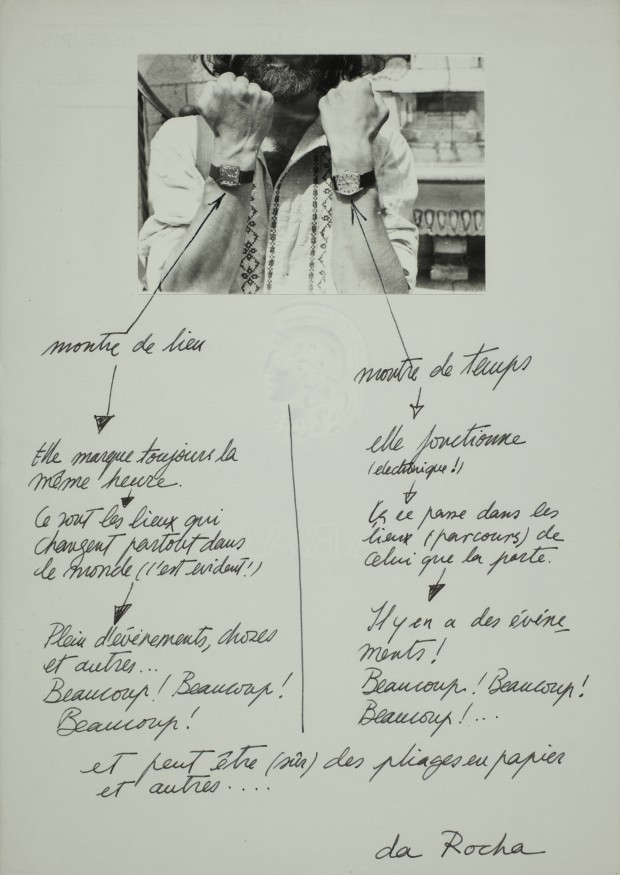 montre de lieu
Elle marque toujours la
même heure.
Ce sont les lieux qui
changent partout dans
le monde (c'est evident!)
Plein d'événements, chozes
et autres...
Beaucoup! Beaucoup!
Beaucoup!
montre de temps
elle fonctionne
(electronique!)
Ça se passe dans les
lieux (parcours) de
celui que la porte.
Il y en a des événe_
ments!
Beaucoup! Beaucoup!
Beaucoup!...
et peut être (sûr) des pliages en papier
et autres....
da Rocha